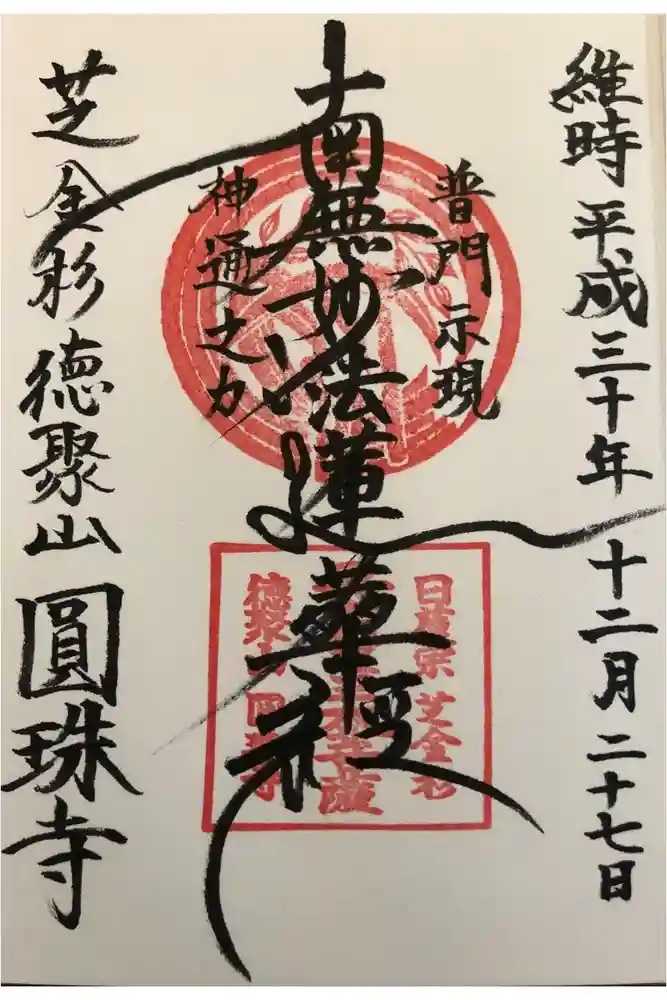 維時 平成三十年 十二月 二十七日
普門示現
南無妙法蓮華経
神通之力
芝金杉 德聚山 圓珠寺
日蓮宗 芝金杉